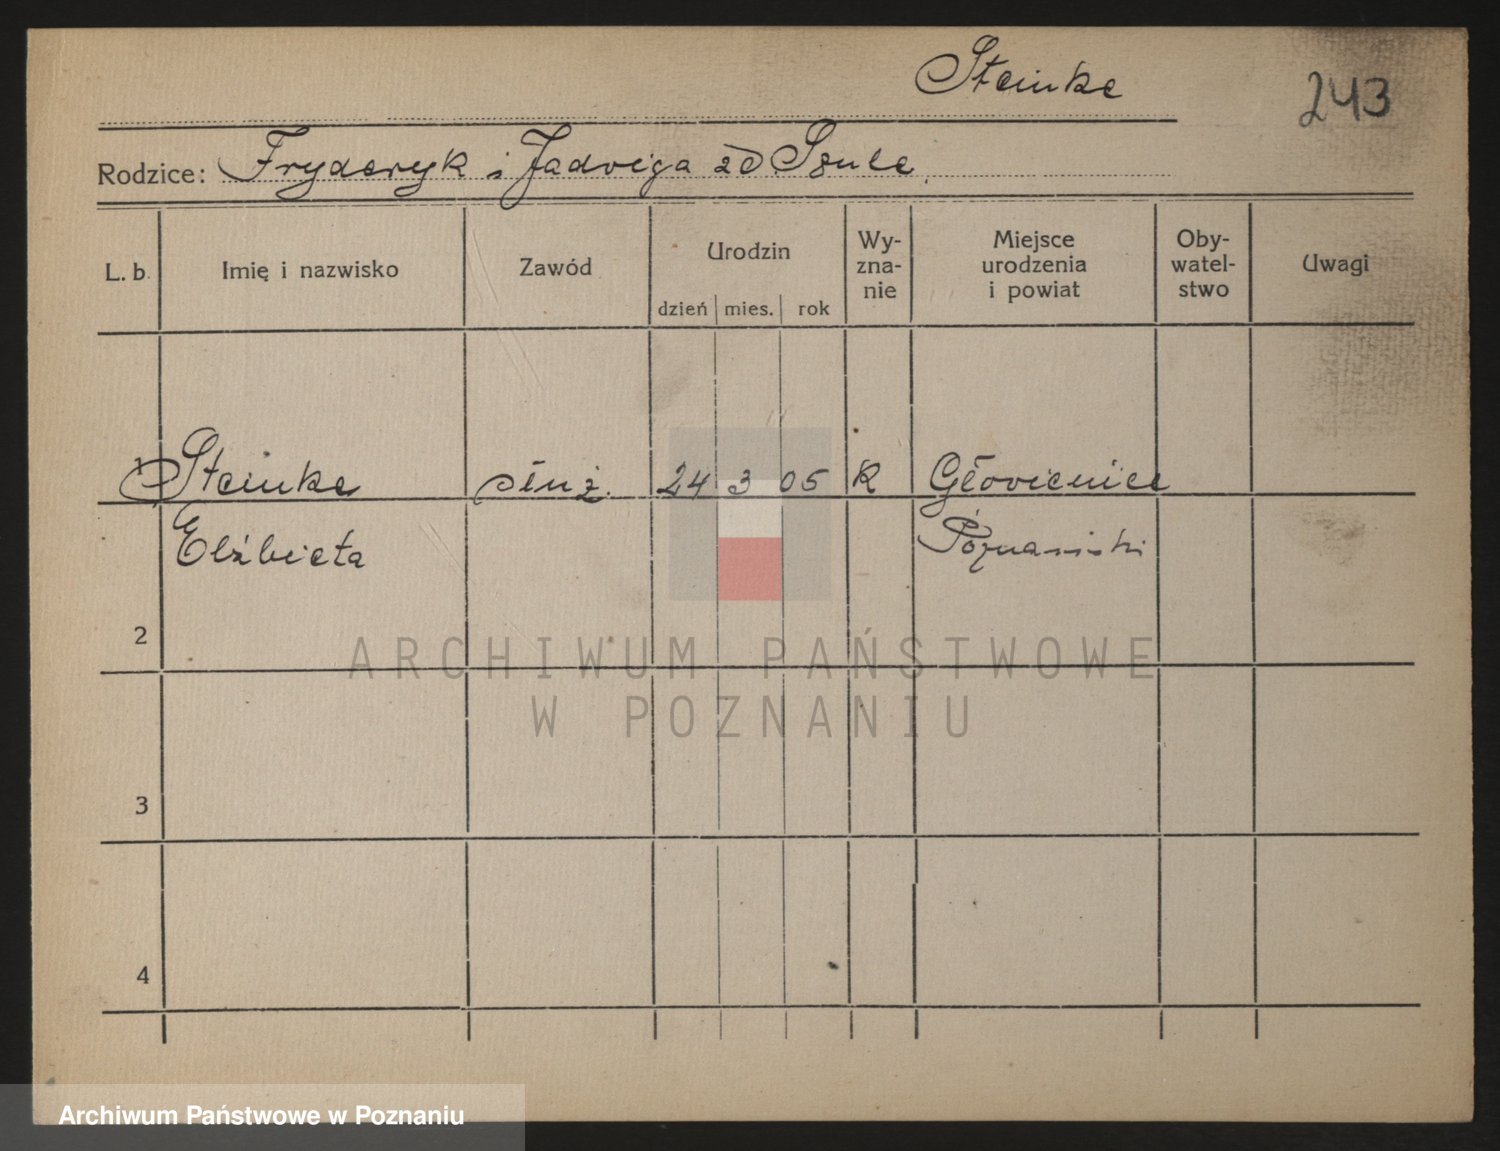 Steinke
243
Rodzice: Fryderyk i Jadwiga zd Szulc
L. b. Imię i nazwisko Zawód Urodzin dzień mies. rok Wy-zna-nie Miejsce urodzenia i powiat Oby-watel-stwo Uwagi
1 Steinke służ. 24 3 05 K Głowienice
Elżbieta Poznański
2
ARCHIWUM PAŃSTWOWE
W POZNANIU
3
4
Archiwum Państwowe w Poznaniu